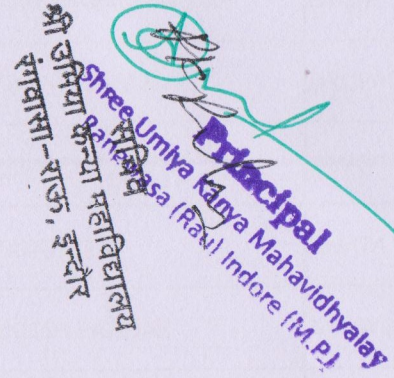 Principal
Shree Umiya Kanya Mahavidhyalay
Rangwasa (Rau) Indore (M.P.)
सचिव
श्री उमिया कन्या महाविद्यालय
रंगवासा-राऊ, इन्दौर